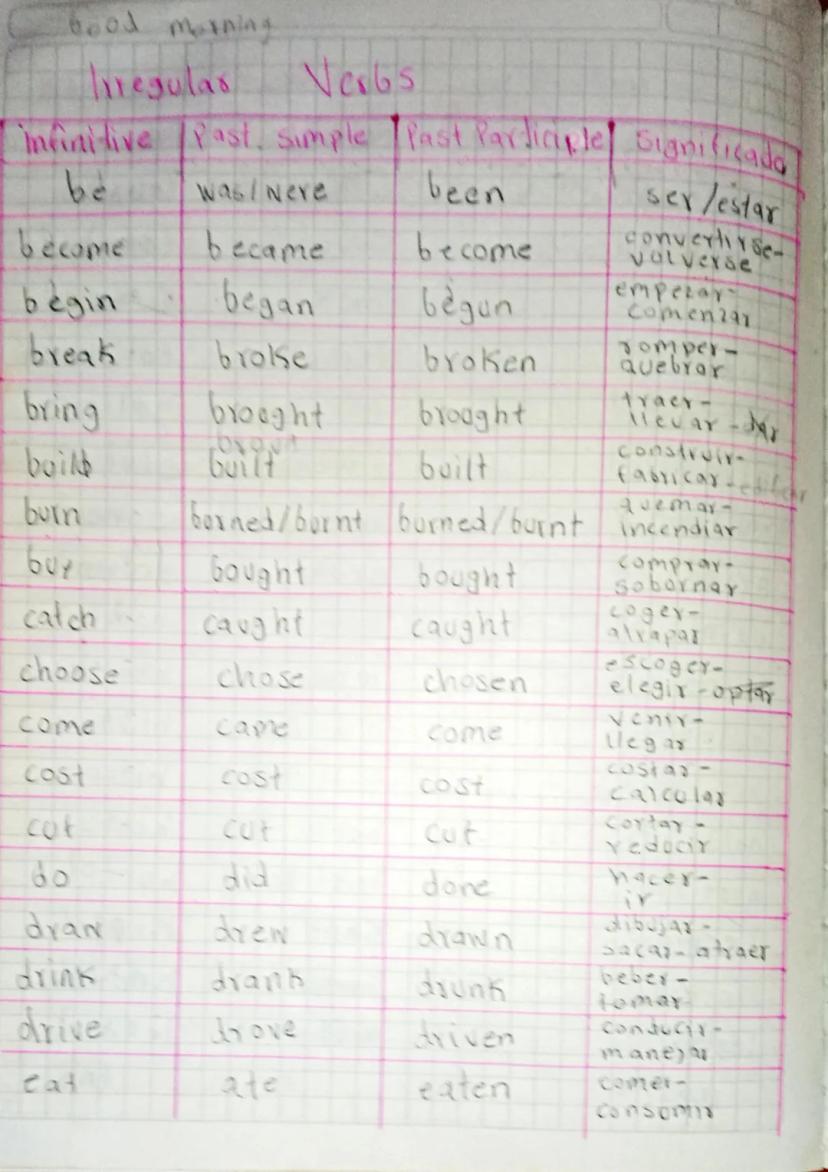 Good morning
Irregular Verbs
infinitive Past simple Past Participle Significado
be was/were been ser/estar
become became become convertirse-
volverse
begin began begun empezar-
comenzar
break broke broken romper-
quebrar
bring brought brought traer-
llevar-dar
build built built construir-
fabricar-edificar
burn burned/burnt burned/burnt quemar-
incendiar
buy bought bought comprar-
sobornar
catch caught caught coger-
atrapar
choose chose chosen escoger-
elegir-optar
come came come venir-
llegar
cost cost cost costar-
calcular
cut cut cut cortar-
reducir
do did done hacer-
ir
draw drew drawn dibujar-
sacar-atraer
drink drank drunk beber-
tomar
drive drove driven conducir-
manejar
eat ate eaten comer-
consomir